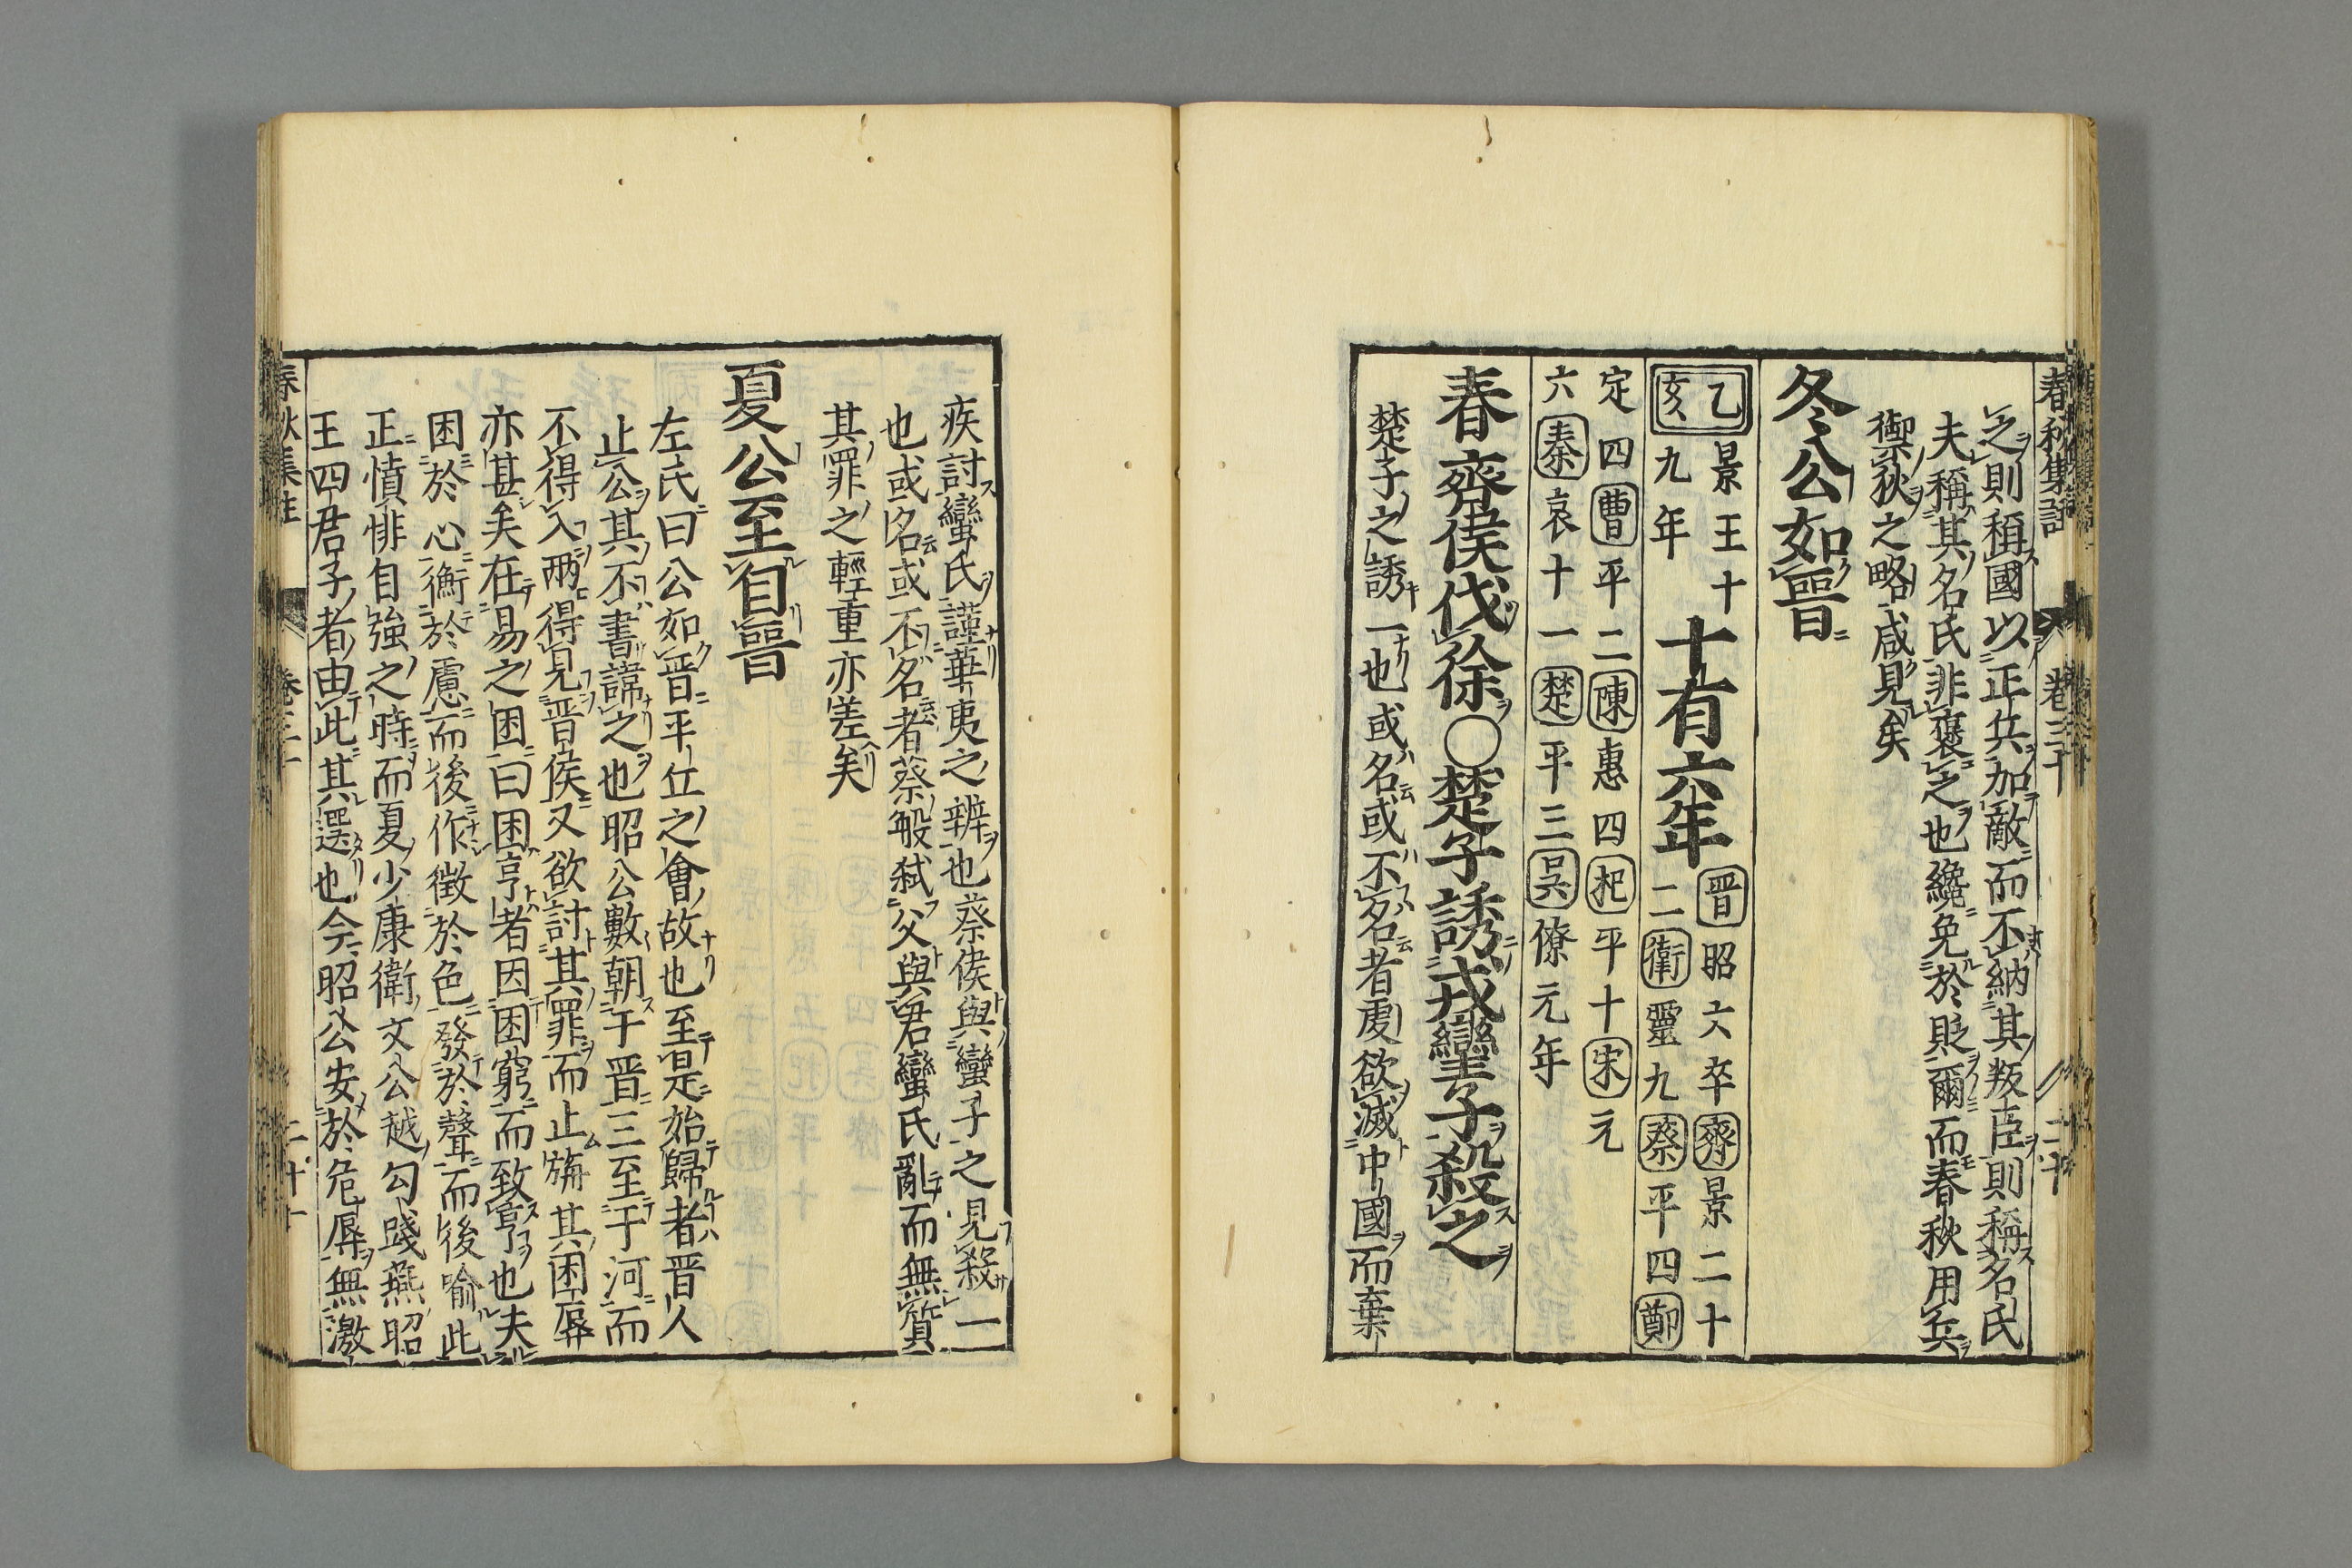 之則稱國以正兵加敵而不納其叛臣則稱名氏
夫稱其名氏非褒之也纔免於貶爾而春秋用兵
禦狄之略咸見矣
冬公如晉
乙亥 景王十九年 十有六年 晉昭六卒齊景二十二衛靈九蔡平四鄭
定四曹平二陳惠四杞平十宋元
六秦哀十一楚平三吳僚元年
春齊侯伐徐○楚子誘戎蠻子殺之
楚子之誘一也或名或不名者虔欲滅中國而棄
疾討蠻氏謹華夷之辨也蔡侯與蠻子之見殺一
也或名或不名者蔡般弑父與君蠻氏亂而無質
其罪之輕重亦差矣
夏公至自晉
左氏曰公如晉平丘之會故也至是始歸者晉人
止公其不書諱之也昭公數朝于晉三至于河而
不得入兩得見晉侯又欲討其罪而止旃其困辱
亦甚矣在易之困曰困亨者因困窮而致亨也夫
困於心衡於慮而後作徵於色發於聲而後喻此
正憤悱自強之時而夏少康衛文公越勾踐燕昭
王四君子者由此其選也今昭公安於危辱無激